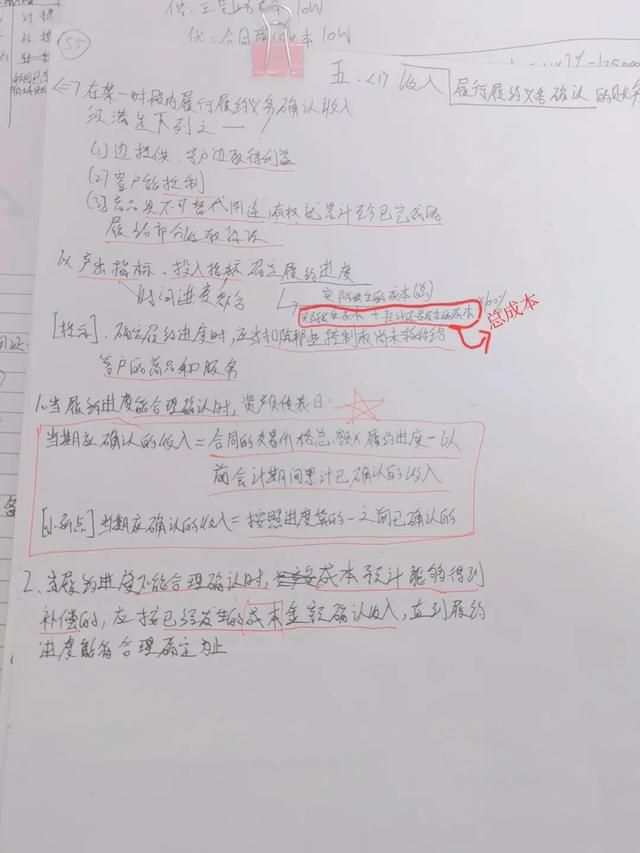 合同 本 10W
55
五.<17 收入
履行履约义务确认的
<=7 在某一时段内履行履约义务确认收入
须满足下列之一
(1) 边提供、客户边取得利益
(2) 客户能控制
(3) 商品具不可替代用途,有权就累计至今已完成的
履约部分收取款项
以产出指标、投入指标确定履约进度
时间进度
实际发生的成本
×100%
总成本
[提示]、确定履约进度时,应当扣除那些控制权尚未转移给
客户的商品和服务
1.当履约进度能合理确认时,资产负债表日:
当期应确认的收入=合同的交易价格总额×履约进度-以
前会计期间累计已确认的收入
当期应确认的收入=按照进度算的-之前已确认的
2.当履约进度不能合理确认时,成本预计能够得到
补偿的,应按已经发生的成本金额确认收入,直到履约
进度能够合理确定为止